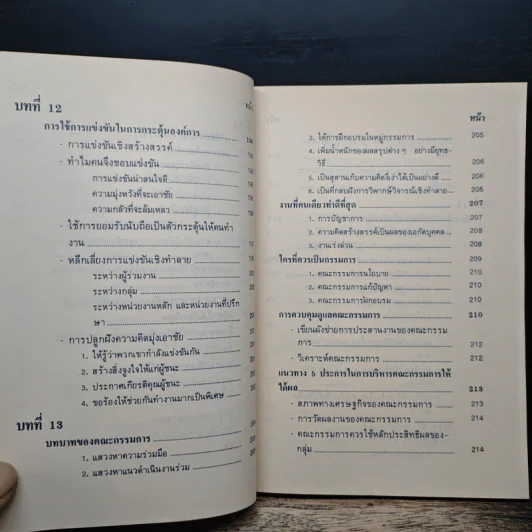 บทที่ 12
การใช้การแข่งขันในการกระตุ้นองค์การ
- การแข่งขันเชิงสร้างสรรค์
- ทำไมคนจึงชอบแข่งขัน
การแข่งขันน่าสนใจดี
ความมุ่งหวังที่จะเอาชัย
ความกลัวที่จะล้มเหลว
- ใช้การยอมรับนับถือเป็นตัวกระตุ้นให้คนทำ
งาน
- หลีกเลี่ยงการแข่งขันเชิงทำลาย
ระหว่างผู้ร่วมงาน
ระหว่างกลุ่ม
ระหว่างหน่วยงานหลัก และหน่วยงานที่ปรึก
ษา
- การปลูกฝังความคิดมุ่งเอาชัย
1. ให้รู้ว่าพวกเขากำลังแข่งขันกัน
2. สร้างสิ่งจูงใจให้แก่ผู้ชนะ
3. ประกาศเกียรติคุณผู้ชนะ
4. ขอร้องให้ช่วยกันทำงานมากเป็นพิเศษ
บทที่ 13
บทบาทของคณะกรรมการ
1. แสวงหาความร่วมมือ
2. แสวงหาแนวดำเนินงานร่วม
หน้า
3. ให้การฝึกอบรมในหมู่กรรมการ 205
4. เพิ่มน้ำหนักของผลสรุปต่าง ๆ อย่างมียุทธ-
วิธี 206
5. เป็นสุสานเก็บความคิดที่เราได้เป็นอย่างดี 206
6. เป็นที่กลบฝังการวิพากษ์วิจารณ์เชิงทำลาย 206
งานที่คนเดียวทำดีที่สุด 207
1. การบัญชาการ 207
2. ความคิดสร้างสรรค์เป็นผลของเอกัตบุคคล 208
3. งานเร่งด่วน 208
ใครที่ควรเป็นกรรมการ 209
1. คณะกรรมการนโยบาย 210
2. คณะกรรมการแก้ปัญหา 210
3. คณะกรรมการฝึกอบรม 210
การควบคุมดูแลคณะกรรมการ 210
- เขียนผังข่ายการประสานงานของคณะกรรม
การ 212
- วิเคราะห์คณะกรรมการ 212
แนวทาง 5 ประการในการบริหารคณะกรรมการให้
ได้ผล 213
- สภาพทางเศรษฐกิจของคณะกรรมการ 213
- การวัดผลงานของคณะกรรมการ 214
- คณะกรรมการควรใช้หลักประสิทธิผลของ-
กลุ่ม 214